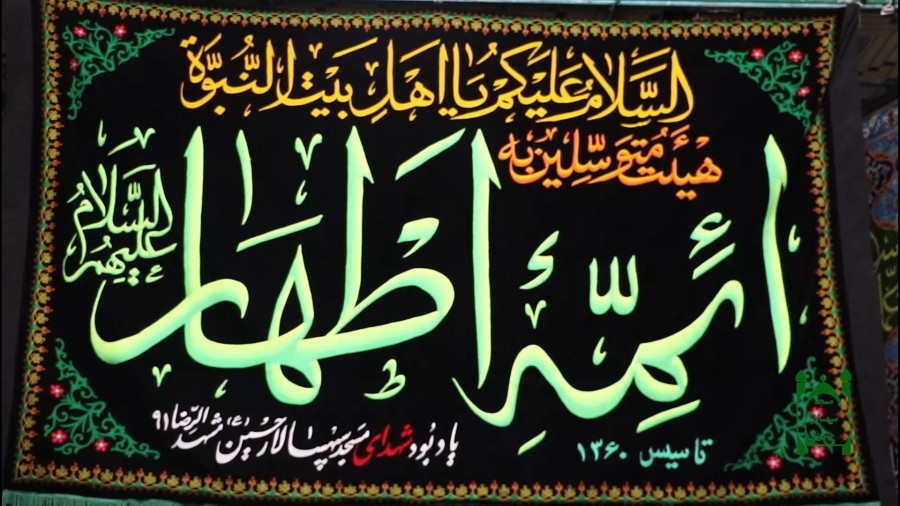 السَّلامُ عَلَیْکُمْ یٰا اَهْلَ بَیْتِ النُّبُوَّةِ
هیئت متوسّلین به
ائمّهٔ اطهار
السَّلامُ عَلَیْهِمُ
تاسیس ۱۳۶۰
یادبود شهدای مسجد سپهسالار حسین (ع) مشهد الرضا ۹۱